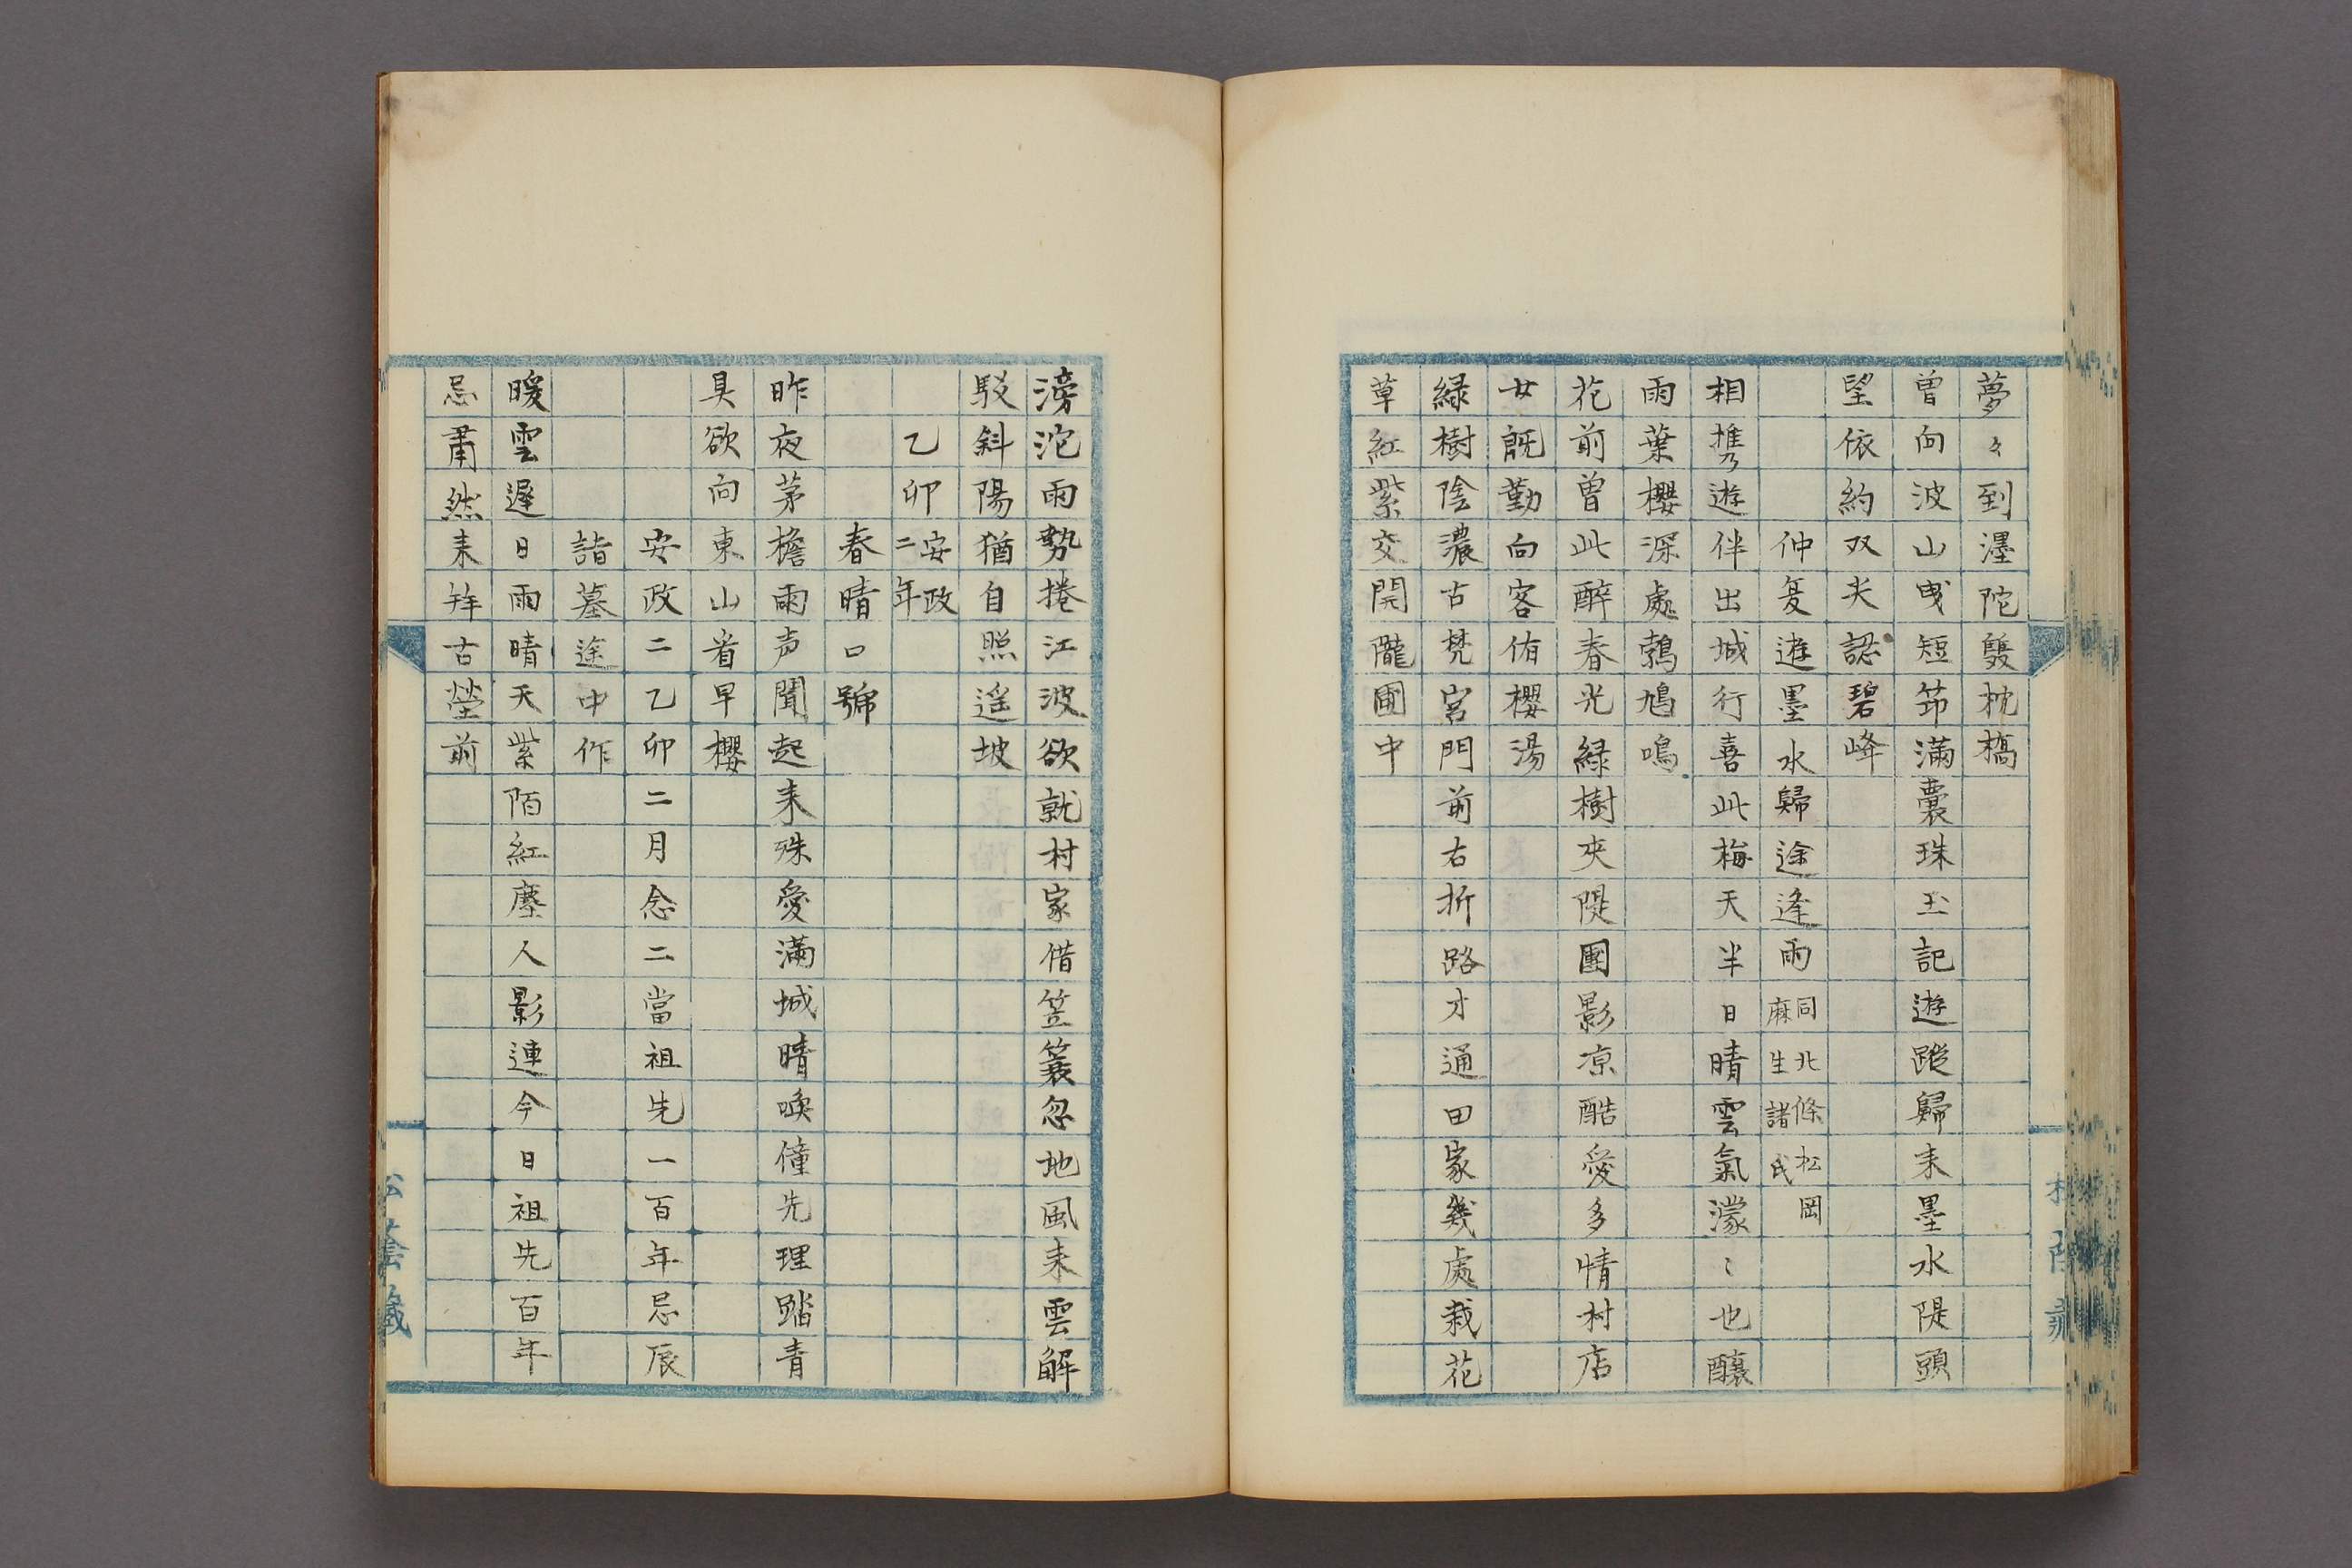 夢々到濹陀雙枕橋
曽向波山曳短笻滿囊珠玉記遊蹤歸来墨水隄頭
望依約双尖認碧峰
仲夏遊墨水歸途逢雨同北條松岡麻生諸氏
相携遊伴出城行喜此梅天半日晴雲氣濛〻也釀
雨葉櫻深處鵓鳩鳴
花前曽此醉春光緑樹夾隄團影凉酷愛多情村店
女既勤向客侑櫻湯
緑樹陰濃古梵宮門前右折路才通田家幾處栽花
草紅紫交開隴圃中
滂沱雨勢捲江波欲就村家借笠簑忽地風来雲解
駁斜陽猶自照遥坡
乙卯安政二年
春晴口號
昨夜茅檐雨声聞起来殊愛滿城晴喚僮先理踏青
具欲向東山省早櫻
安政二乙卯二月念二當祖先一百年忌辰
詣墓途中作
暖雲遲日雨晴天紫陌紅塵人影連今日祖先百年
忌肅然来拜古塋前
松蔭藏